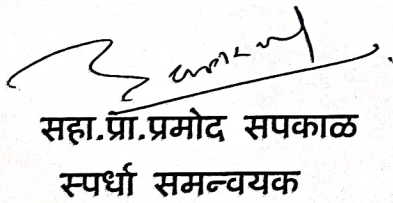 सहा.प्रा.प्रमोद सपकाळ
स्पर्धा समन्वयक